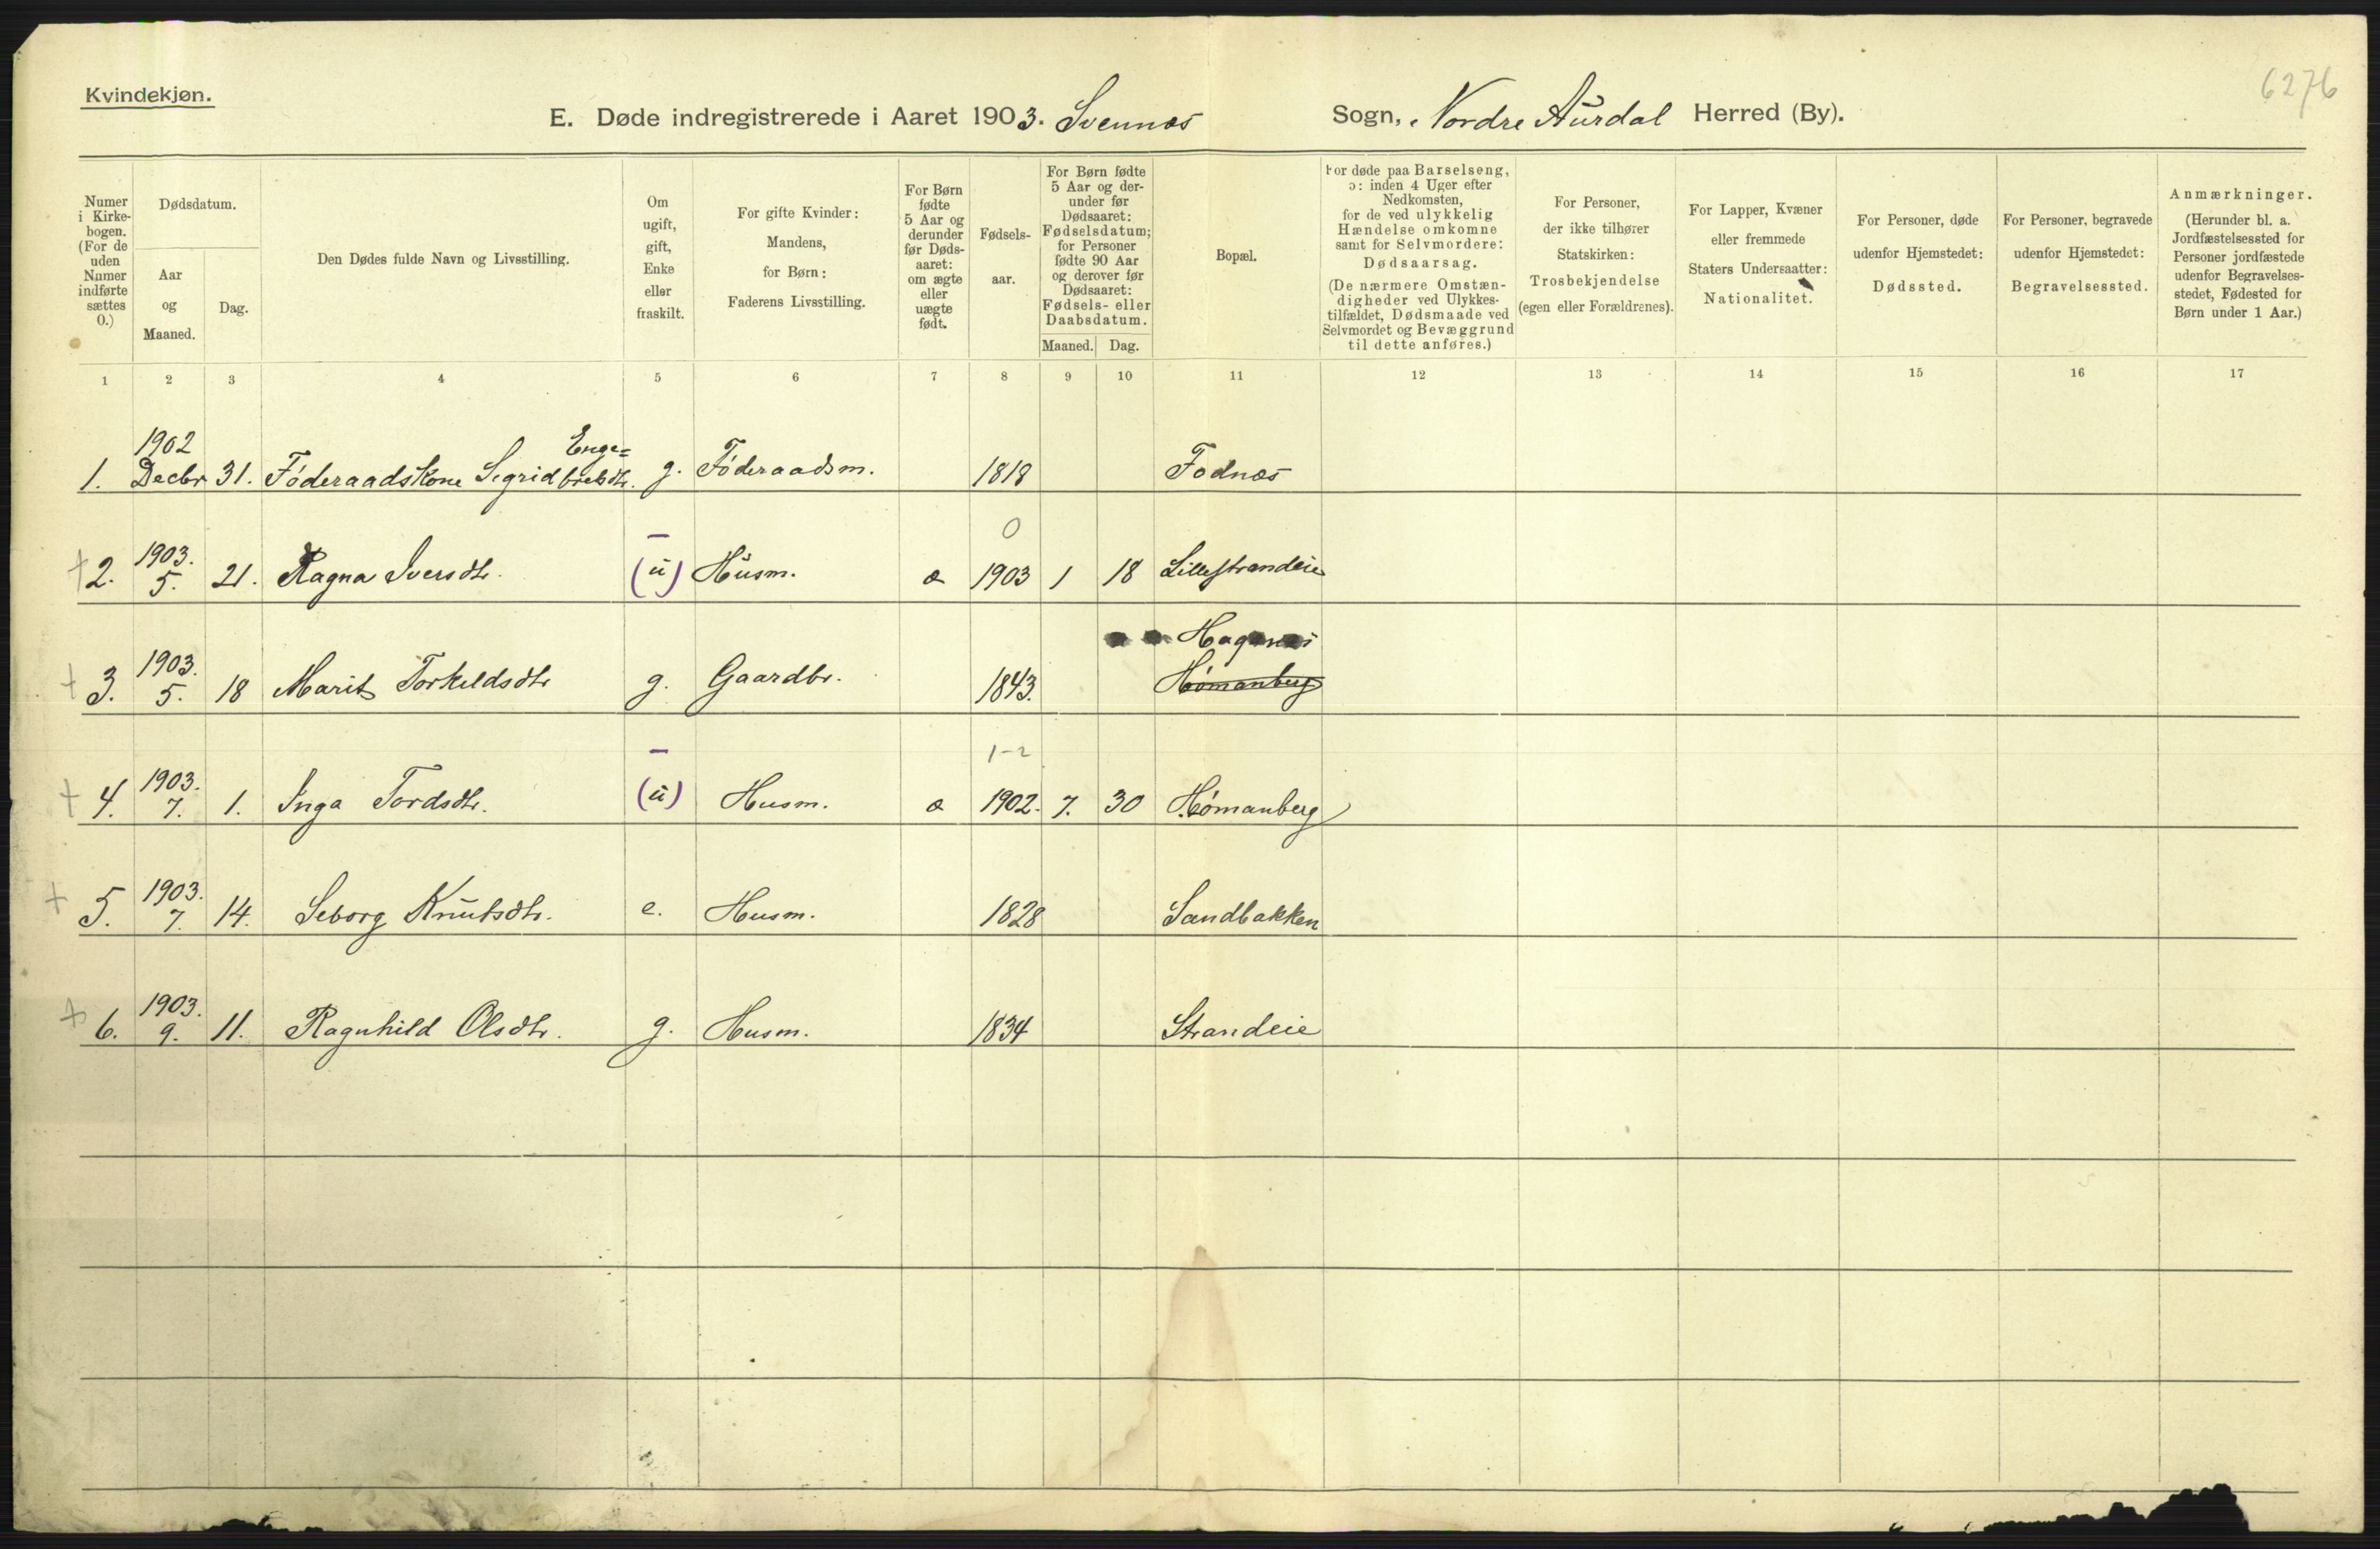 Kvindekjøn.
6276
E. Døde indregistrerede i Aaret 1903. Svennæs Sogn, Nordre Aurdal Herred (By).
Numer i Kirke-bogen. (For de uden Numer indførte sættes 0.)
Dødsdatum.
Aar og Maaned.
Dag.
Den Dødes fulde Navn og Livsstilling.
Om ugift, gift, Enke eller fraskilt.
For gifte Kvinder: Mandens, for Børn: Faderens Livsstilling.
For Børn fødte 5 Aar og derunder før Døds-aaret: om ægte eller uægte født.
Fødsels-aar.
For Børn fødte 5 Aar og der-under før Dødsaaret: Fødselsdatum; for Personer fødte 90 Aar og derover før Dødsaaret: Fødsels- eller Daabsdatum.
Maaned. Dag.
Bopæl.
For døde paa Barselseng, ɔ: inden 4 Uger efter Nedkomsten, for de ved ulykkelig Hændelse omkomne samt for Selvmordere: Dødsaarsag. (De nærmere Omstæn-digheder ved Ulykkes-tilfældet, Dødsmaade ved Selvmordet og Bevæggrund til dette anføres.)
For Personer, der ikke tilhører Statskirken: Trosbekjendelse (egen eller Forældrenes).
For Lapper, Kvæner eller fremmede Staters Undersaatter: Nationalitet.
For Personer, døde udenfor Hjemstedet: Dødssted.
For Personer, begravede udenfor Hjemstedet: Begravelsessted.
Anmærkninger. (Herunder bl. a. Jordfæstelsessted for Personer jordfæstede udenfor Begravelses-stedet, Fødested for Børn under 1 Aar.)
1 2 3 4 5 6 7 8 9 10 11 12 13 14 15 16 17
1. 1902 Decbr 31. Føderaadskone Sigrid Enge=bretsdtr. g. Føderaadsm. 1818 Fodnæs
0
+ 2. 1903. 5. 21. Ragna Iversdtr. (u) Husm. æ 1903 1 18 Lillestrandeie
+ 3. 1903. 5. 18 Marit Torkeldsdtr g. Gaardbr. 1843. Hagenæs Hómanberg
1-2
+ 4. 1903. 7. 1. Inga Tordsdtr. (u) Husm. æ 1902. 7. 30 Hómanberg
+ 5. 1903. 7. 14. Seborg Knutsdtr. e. Husm. 1828 Sandbakken
+ 6. 1903. 9. 11. Ragnhild Olsdtr. g. Husm. 1834 Strandeie